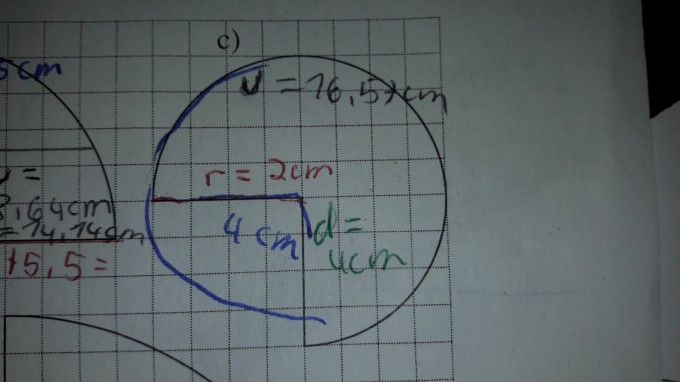 c)
5cm
u = 16,57cm
r = 2cm
=
,64cm
= 14,14cm
4 cm
d =
4cm
+5,5 =